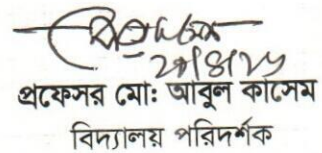 প্রফেসর মো: আবুল কাসেম
বিদ্যালয় পরিদর্শক